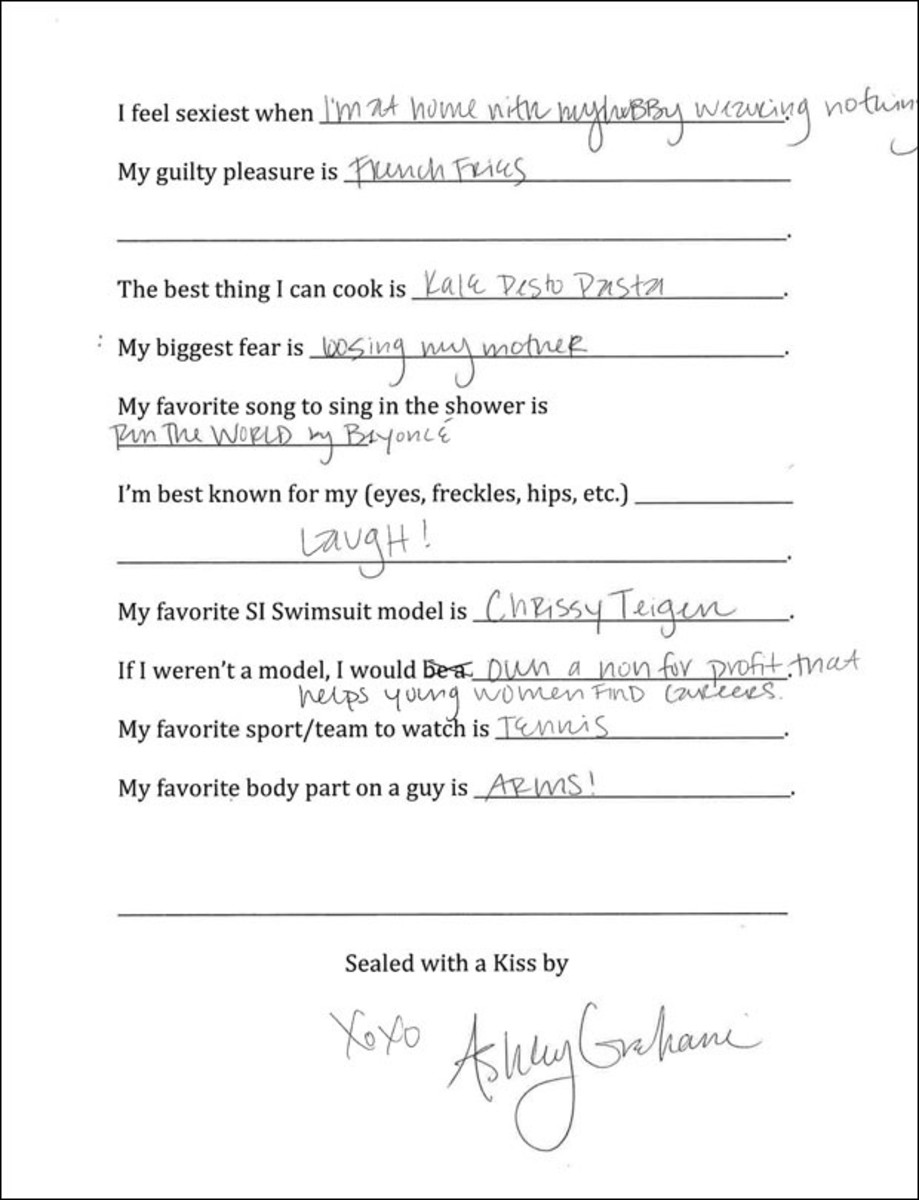 I feel sexiest when I'm at home with my huBBy wearing nothing.
My guilty pleasure is French Fries
.
The best thing I can cook is Kale Pesto Pasta.
: My biggest fear is loosing my mother.
My favorite song to sing in the shower is
Run The WORLD by Beyoncé
I'm best known for my (eyes, freckles, hips, etc.)
Laugh!.
My favorite SI Swimsuit model is Chrissy Teigen.
If I weren't a model, I would be a own a non for profit that
helps young women FIND careers.
My favorite sport/team to watch is Tennis.
My favorite body part on a guy is ARMS!.
Sealed with a Kiss by
XoXo Ashley Graham